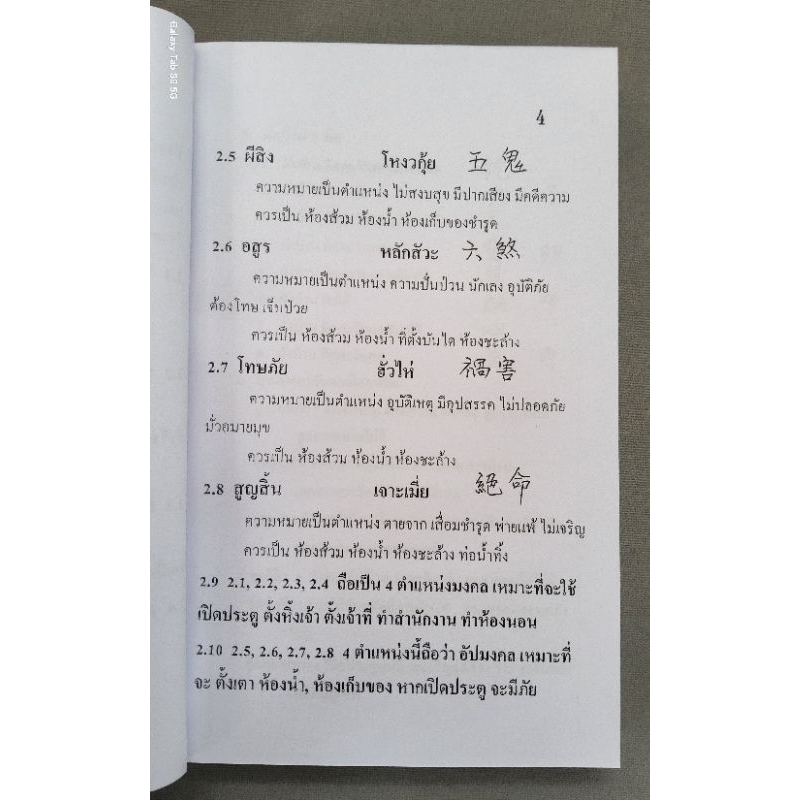 Galaxy Tab S9 5G
4
2.5 ผีสิง โหงวกุ้ย 五鬼
ความหมายเป็นตำแหน่ง ไม่สงบสุข มีปากเสียง มีคดีความ
ควรเป็น ห้องส้วม ห้องน้ำ ห้องเก็บของชำรุด
2.6 อสูร หลักสัวะ 六煞
ความหมายเป็นตำแหน่ง ความปั่นป่วน นักเลง อุบัติภัย
ต้องโทษ เจ็บป่วย
ควรเป็น ห้องส้วม ห้องน้ำ ที่ตั้งบันได ห้องชะล้าง
2.7 โทษภัย ฮั่วไห่ 禍害
ความหมายเป็นตำแหน่ง อุบัติเหตุ มีอุปสรรค ไม่ปลอดภัย
มั่วอบายมุข
ควรเป็น ห้องส้วม ห้องน้ำ ห้องชะล้าง
2.8 สูญสิ้น เจาะเมี่ย 絕命
ความหมายเป็นตำแหน่ง ตายจาก เสื่อมชำรุด พ่ายแพ้ ไม่เจริญ
ควรเป็น ห้องส้วม ห้องน้ำ ห้องชะล้าง ท่อน้ำทิ้ง
2.9 2.1, 2.2, 2.3, 2.4 ถือเป็น 4 ตำแหน่งมงคล เหมาะที่จะใช้
เปิดประตู ตั้งหิ้งเจ้า ตั้งเจ้าที่ ทำสำนักงาน ทำห้องนอน
2.10 2.5, 2.6, 2.7, 2.8 4 ตำแหน่งนี้ถือว่า อัปมงคล เหมาะที่
จะ ตั้งเตา ห้องน้ำ, ห้องเก็บของ หากเปิดประตู จะมีภัย